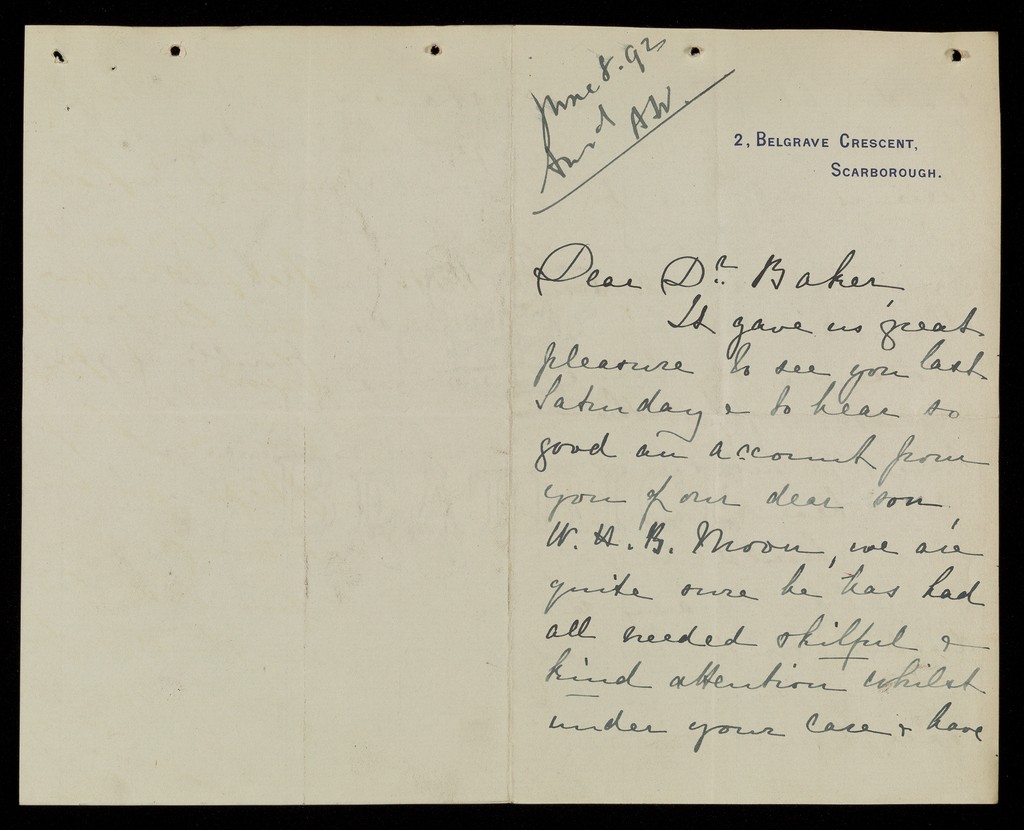 June 8. 92
AW.
2, BELGRAVE CRESCENT,
SCARBOROUGH.
Dear Dr. Baker,
It gave us great
pleasure to see you last
Saturday & to hear so
good an account from
you of our dear son,
W. H. B. Moon, we are
quite sure he has had
all needed skilful &
kind attention whilst
under your care & have